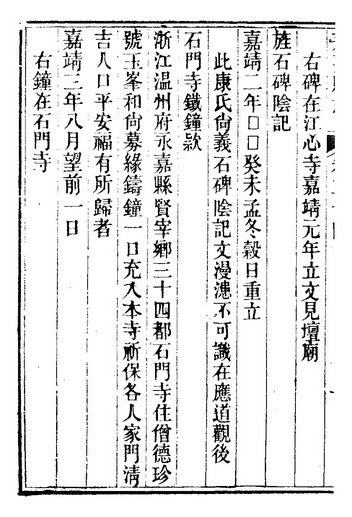 右碑在江心寺嘉靖元年立文見壇廟
旌石碑陰記
嘉靖二年□□癸未孟冬穀日重立
此康氏尙義石碑陰記文漫漶不可識在應道觀後
石門寺鐵鐘款
浙江温州府永嘉縣賢宰鄉三十四都石門寺住僧德珍
號玉峯和尙募緣鑄鐘一口充入本寺祈保各人家門清
吉人口平安福有所歸者
嘉靖二年八月望前一日
右鐘在石門寺